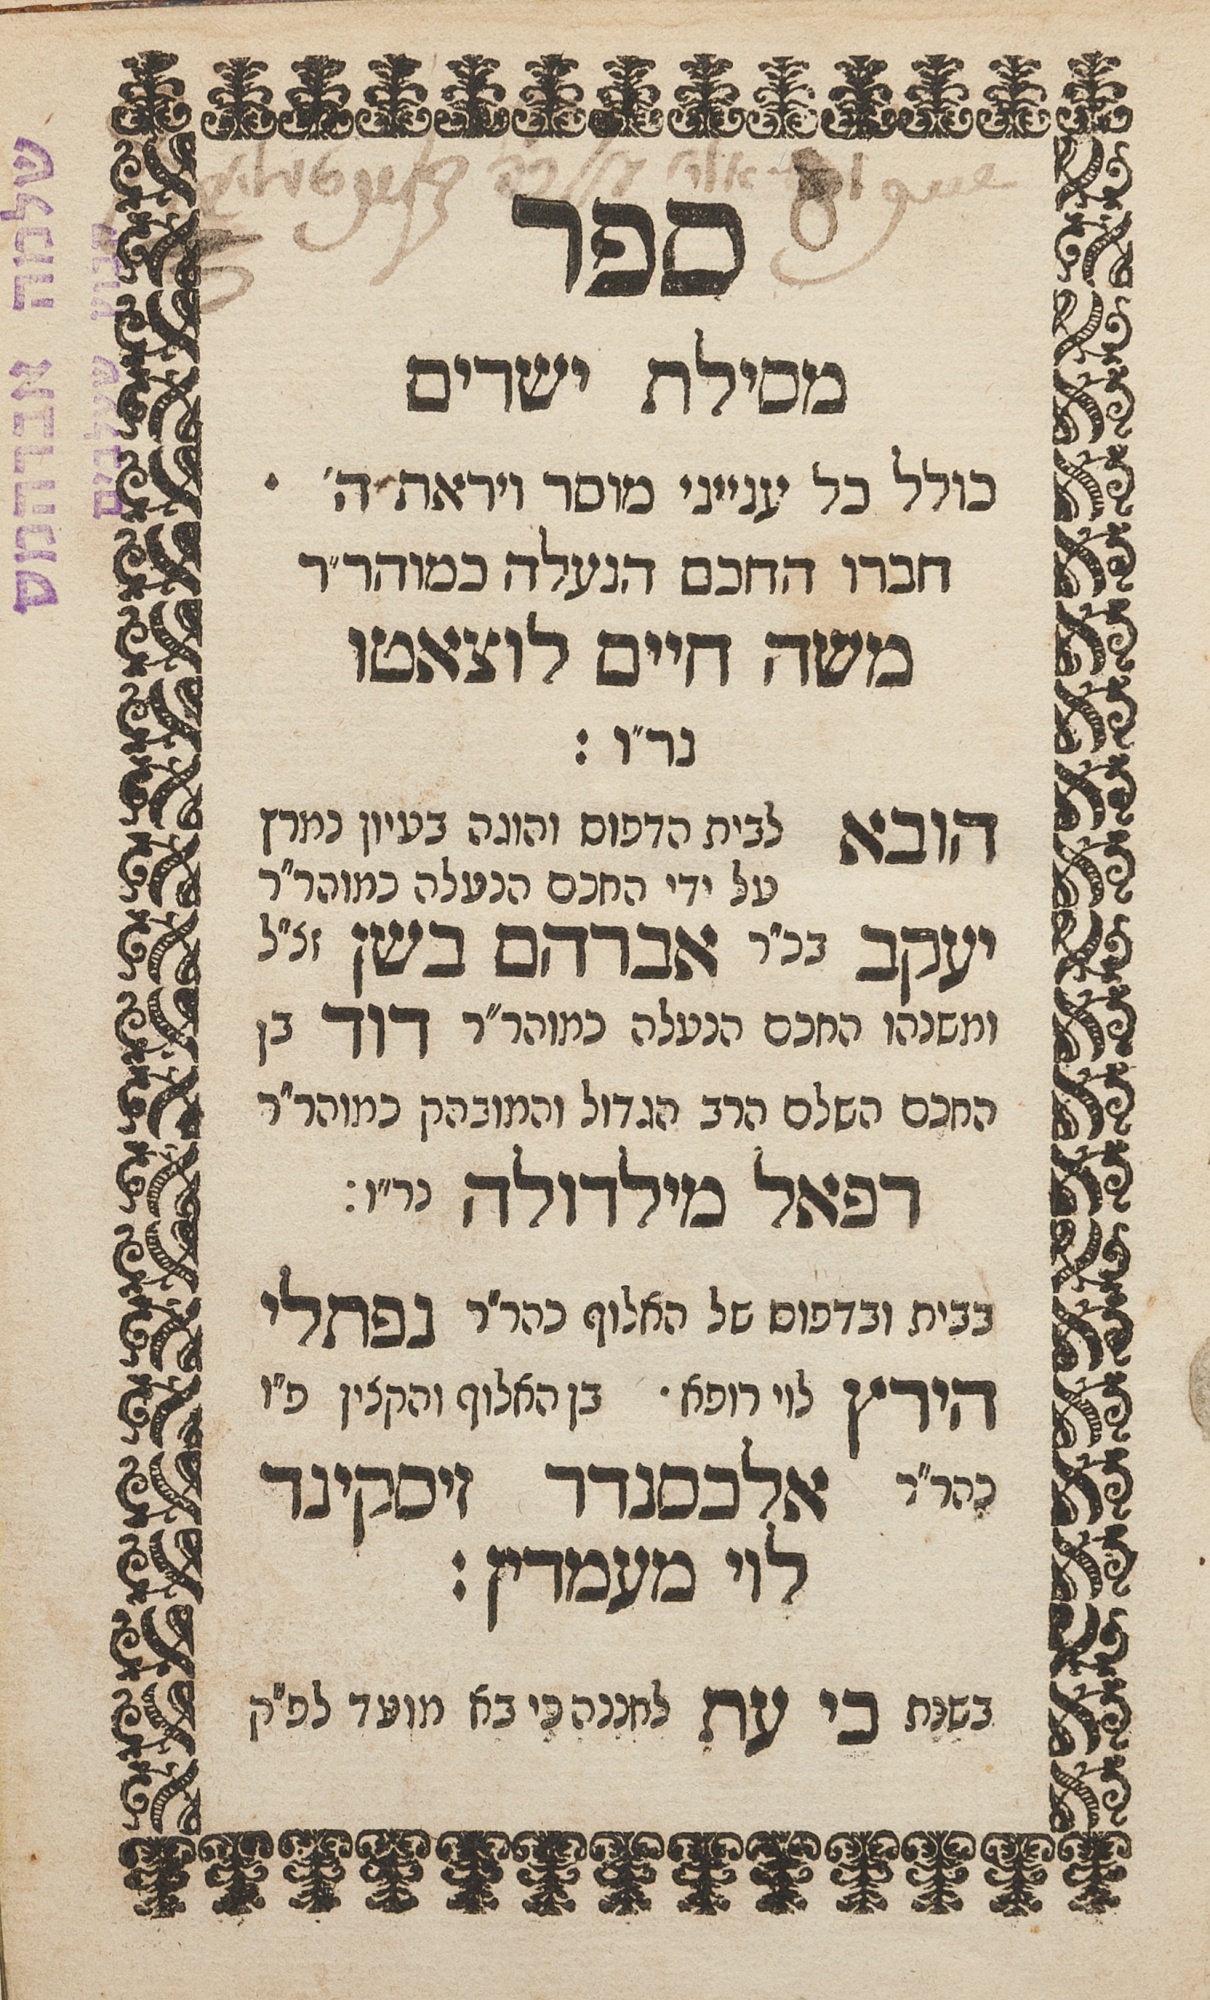 ספר
מסילת ישרים
כולל כל ענייני מוסר ויראת ה' ·
חברו החכם הנעלה כמוהר״ר
משה חיים לוצאטו
נר״ו :
הובא לבית הדפוס והוגה בעיון נמרץ
על ידי החכם הנעלה כמוהר״ר
יעקב בכ״ר אברהם בשן זצ״ל
ומשנהו החכם הנעלה כמוהר״ר דוד בן
החכם השלם הרב הגדול והמובהק כמוהר״ר
רפאל מילדולה נר״ו:
בבית ובדפוס של האלוף כהר״ר נפתלי
הירץ לוי רופא · בן האלוף והקצין פ״ו
כהר״ר אלכסנדר זיסקינד
לוי מעמדין :
בשנת כי עת לחננה כי בא מועד לפ״ק
שלמה אברהמס
קבוץ שעלבים